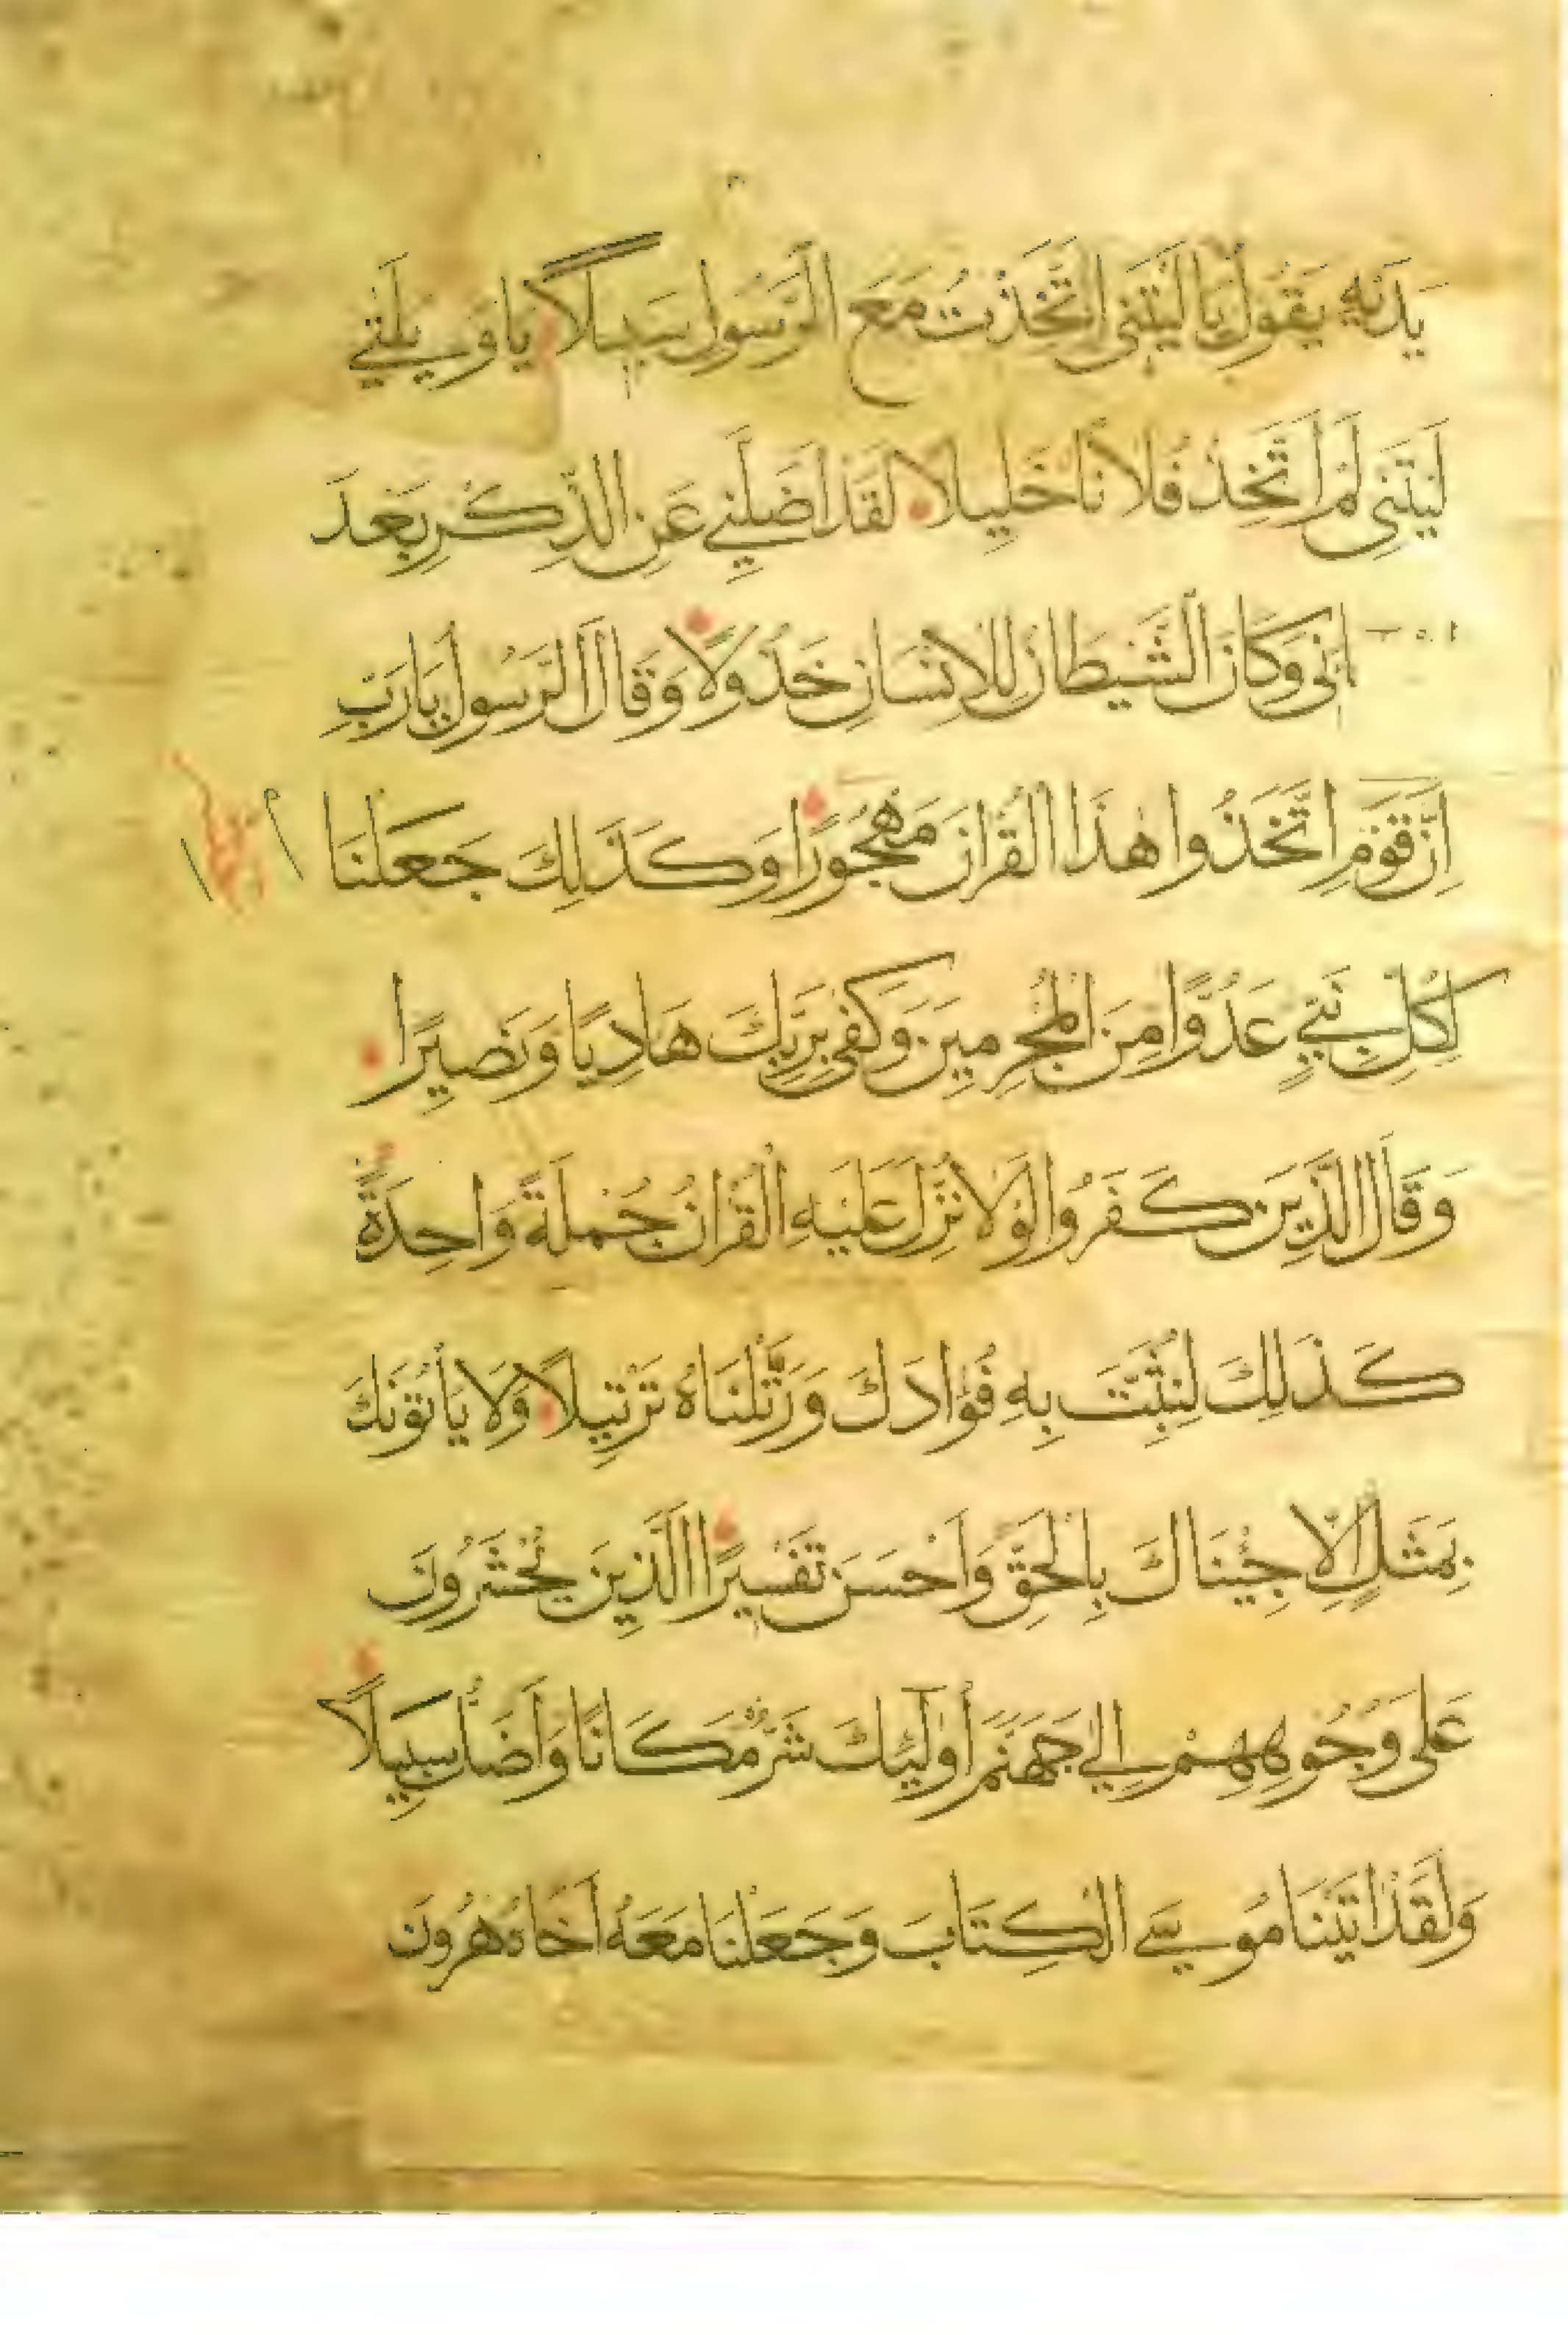 يَدَيْهِ يَقُولُ يَا لَيْتَنِى اتَّخَذْتُ مَعَ الرَّسُولِ سَبِيلًا يَا وَيْلَتَي
لَيْتَنِى لَمْ اَتَّخِذْ فُلَانًا خَلِيلًا لَقَدْ اَضَلَّنِي عَنِ الذِّكْرِ بَعْدَ
اِذْ جَآءَنِى وَكَانَ الشَّيْطَانُ لِلْاِنْسَانِ خَذُولًا وَقَالَ الرَّسُولُ يَا رَبِّ
اِنَّ قَوْمِى اتَّخَذُوا هٰذَا الْقُرْاٰنَ مَهْجُورًا وَكَذَلِكَ جَعَلْنَا
لِكُلِّ نَبِيٍّ عَدُوًّا مِنَ الْمُجْرِمِينَ وَكَفَى بِرَبِّكَ هَادِيًا وَنَصِيرًا
وَقَالَ الَّذِينَ كَفَرُوا لَوْلَا نُزِّلَ عَلَيْهِ الْقُرْاٰنُ جُمْلَةً وَاحِدَةً
كَذَلِكَ لِنُثَبِّتَ بِهِ فُؤَادَكَ وَرَتَّلْنَاهُ تَرْتِيلًا وَلَا يَأْتُونَكَ
بِمَثَلٍ اِلَّا جِئْنَاكَ بِالْحَقِّ وَاَحْسَنَ تَفْسِيرًا الَّذِينَ يُحْشَرُونَ
عَلَى وُجُوهِهِمْ اِلٰي جَهَنَّمَ أُولٰٓئِكَ شَرٌّ مَكَانًا وَاَضَلُّ سَبِيلًا
وَلَقَدْ اٰتَيْنَا مُوسَي الْكِتَابَ وَجَعَلْنَا مَعَهُ اَخَاهُ هٰرُونَ